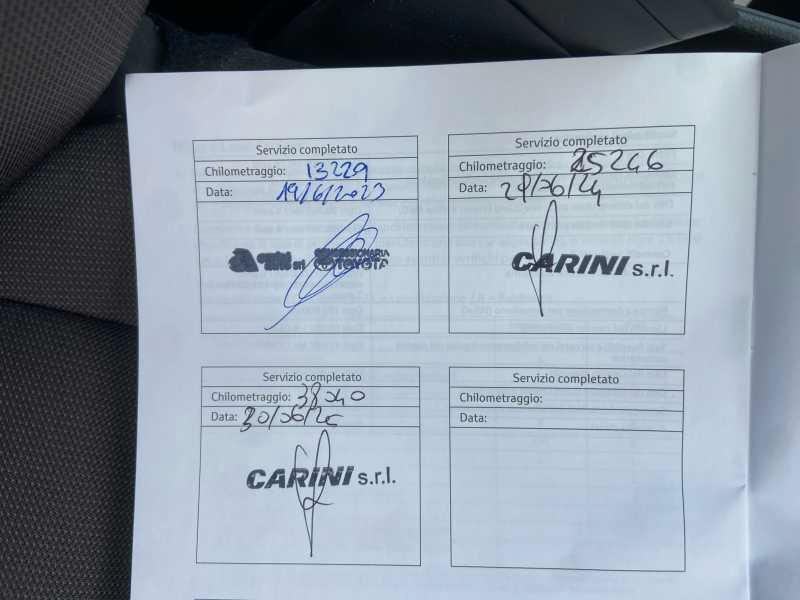 Servizio completato
Chilometraggio: 13229
Data: 19/6/2023
CONCESSIONARIA
TOYOTA
Servizio completato
Chilometraggio: 25246
Data: 28/06/24
CARINI s.r.l.
Servizio completato
Chilometraggio: 38040
Data: 30/06/25
CARINI s.r.l.
Servizio completato
Chilometraggio:
Data: